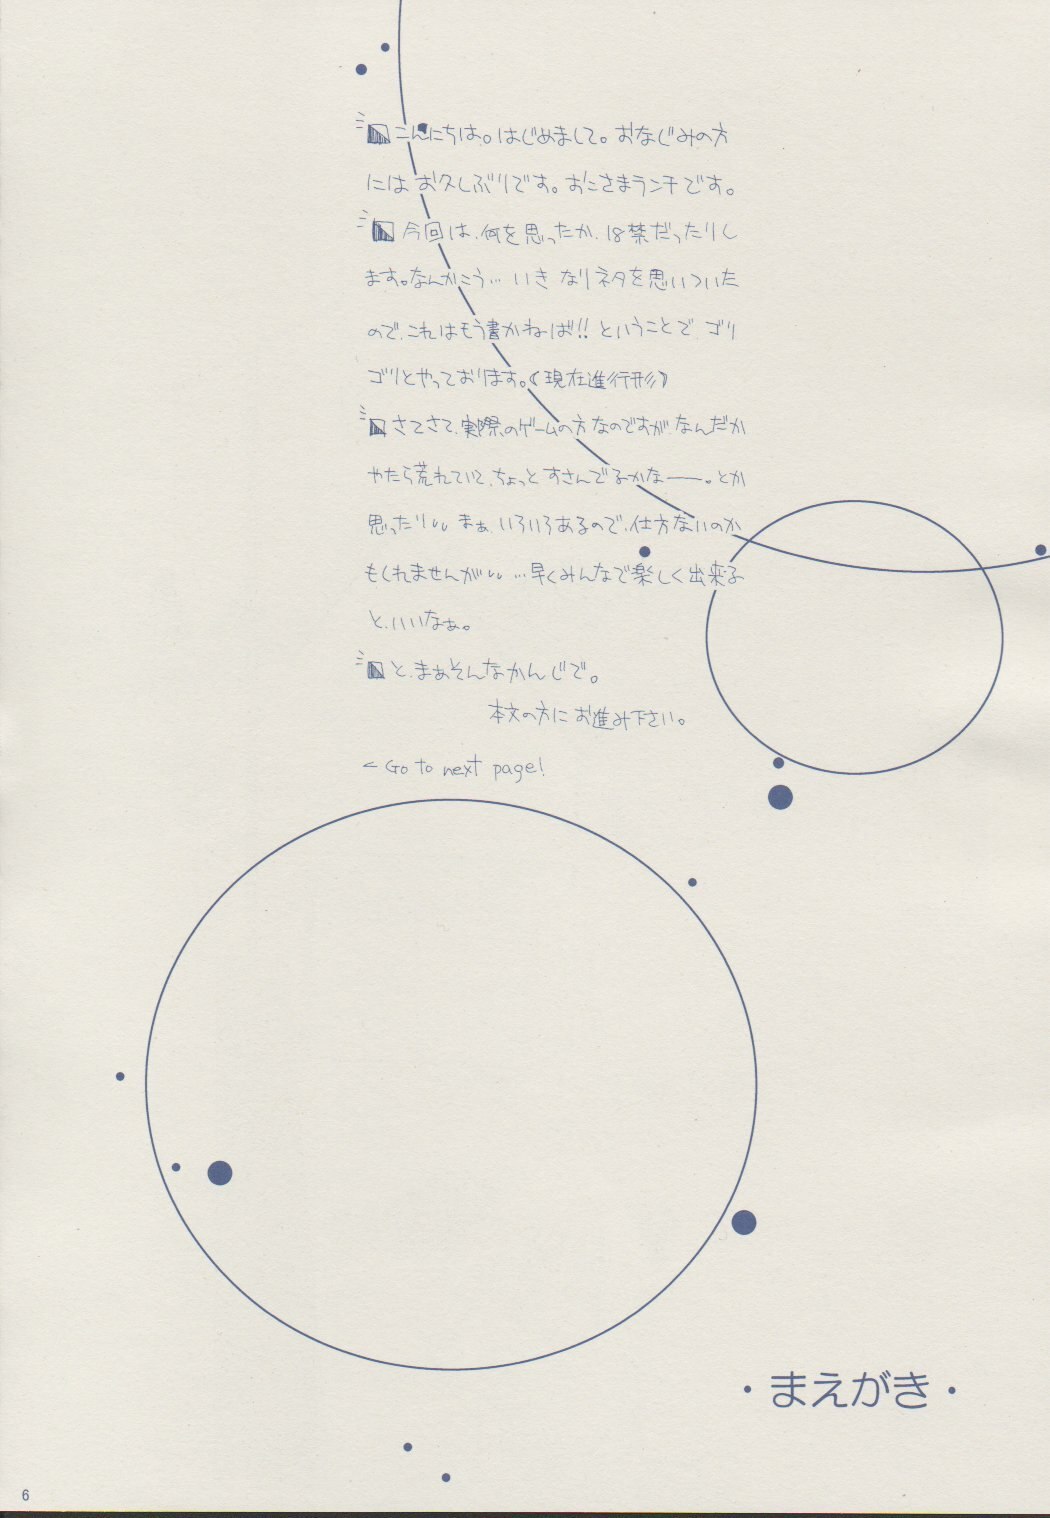 こんにちは。はじめまして。おなじみの方
には お久しぶりです。おこさまランチです。
今回は、何を思ったか、18禁だったりし
ます。なんかこう… いきなりネタを思いついた
ので、これはもう書かねーば!! ということで、ゴリ
ゴリとやっております。(現在進行形)
さてさて、実際のゲームの方なのですが、なんだか
やたら荒れていて、ちょっとすさんでるかなー。とか
思ったり、、 まぁ、いろいろあるので、仕方ないのか
もしれませんが、、 …早くみんなで楽しく出来る
と、いいなぁ。
と、まぁそんなかんじで。
本文の方にお進み下さい。
< Go to next page!
・まえがき・
6